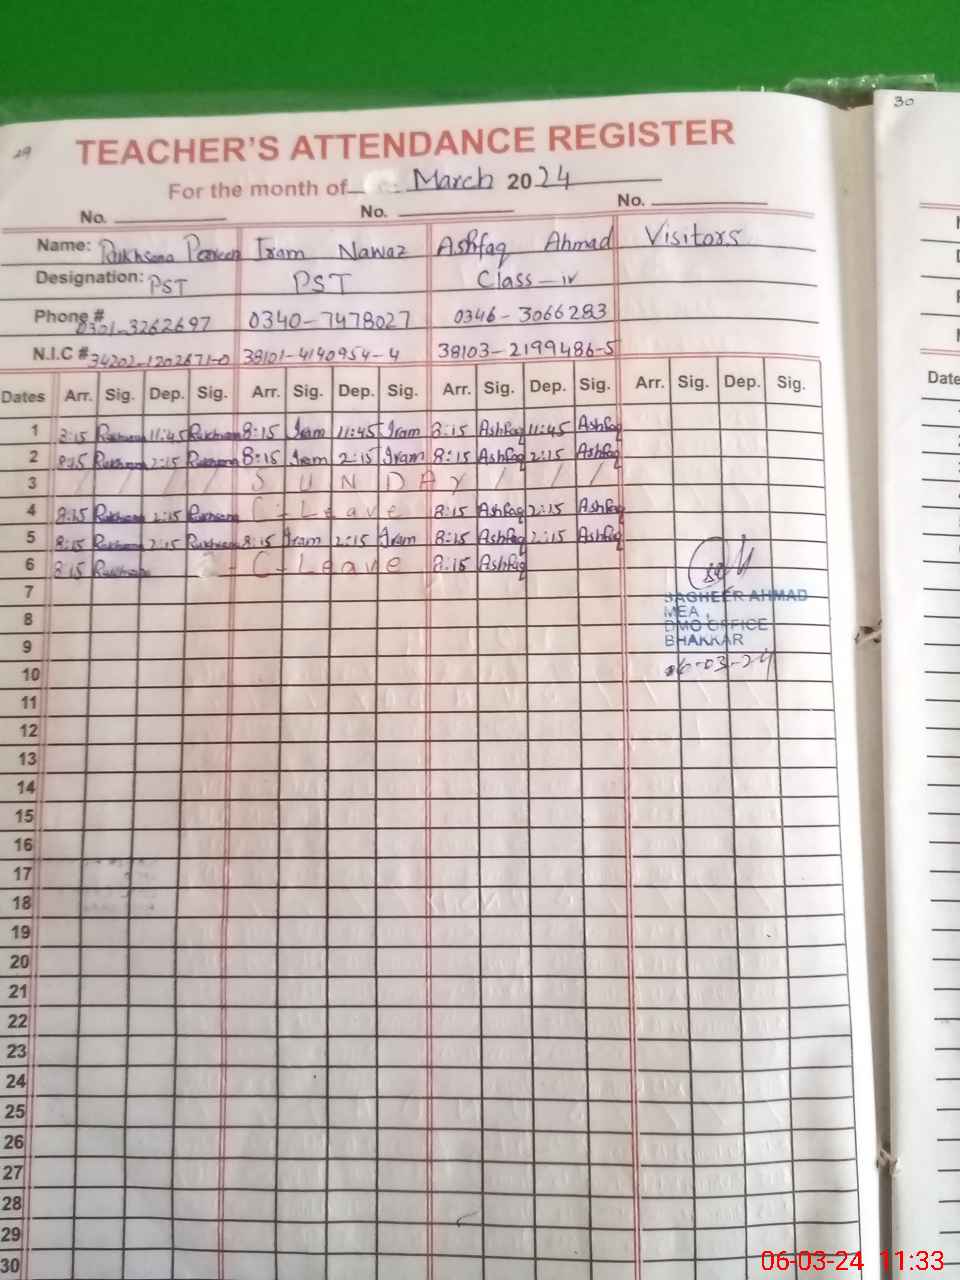 29
30
TEACHER'S ATTENDANCE REGISTER
For the month of March 2024
No. No. No.
Name: Rukhsana Perveen Iram Nawaz Ashfaq Ahmad Visitors
Designation: PST PST Class-iv
Phone # 0301-3262697 0340-7478027 0346-3066283
N.I.C # 34202-1202671-0 38101-4140954-4 38103-2199486-5
Dates Arr. Sig. Dep. Sig. Arr. Sig. Dep. Sig. Arr. Sig. Dep. Sig. Arr. Sig. Dep. Sig.
1 8:15 Rukhsana 11:45 Rukhsana 8:15 Iram 11:45 Iram 8:15 Ashfaq 11:45 Ashfaq
2 8:15 Rukhsana 2:15 Rukhsana 8:15 Iram 2:15 Iram 8:15 Ashfaq 2:15 Ashfaq
3 / / / / S U N D A Y / / /
4 8:15 Rukhsana 2:15 Rukhsana C-Leave 8:15 Ashfaq 2:15 Ashfaq
5 8:15 Rukhsana 2:15 Rukhsana 8:15 Iram 2:15 Iram 8:15 Ashfaq 2:15 Ashfaq
6 8:15 Rukhsana - C-Leave 8:15 Ashfaq
7
SAGHEER AHMAD
MEA,
8
DMO OFFICE
9
BHAKKAR
10
06-03-24
11
12
13
14
15
16
17
18
19
20
21
22
23
24
25
26
27
28
29
30
Date
06-03-24 11:33